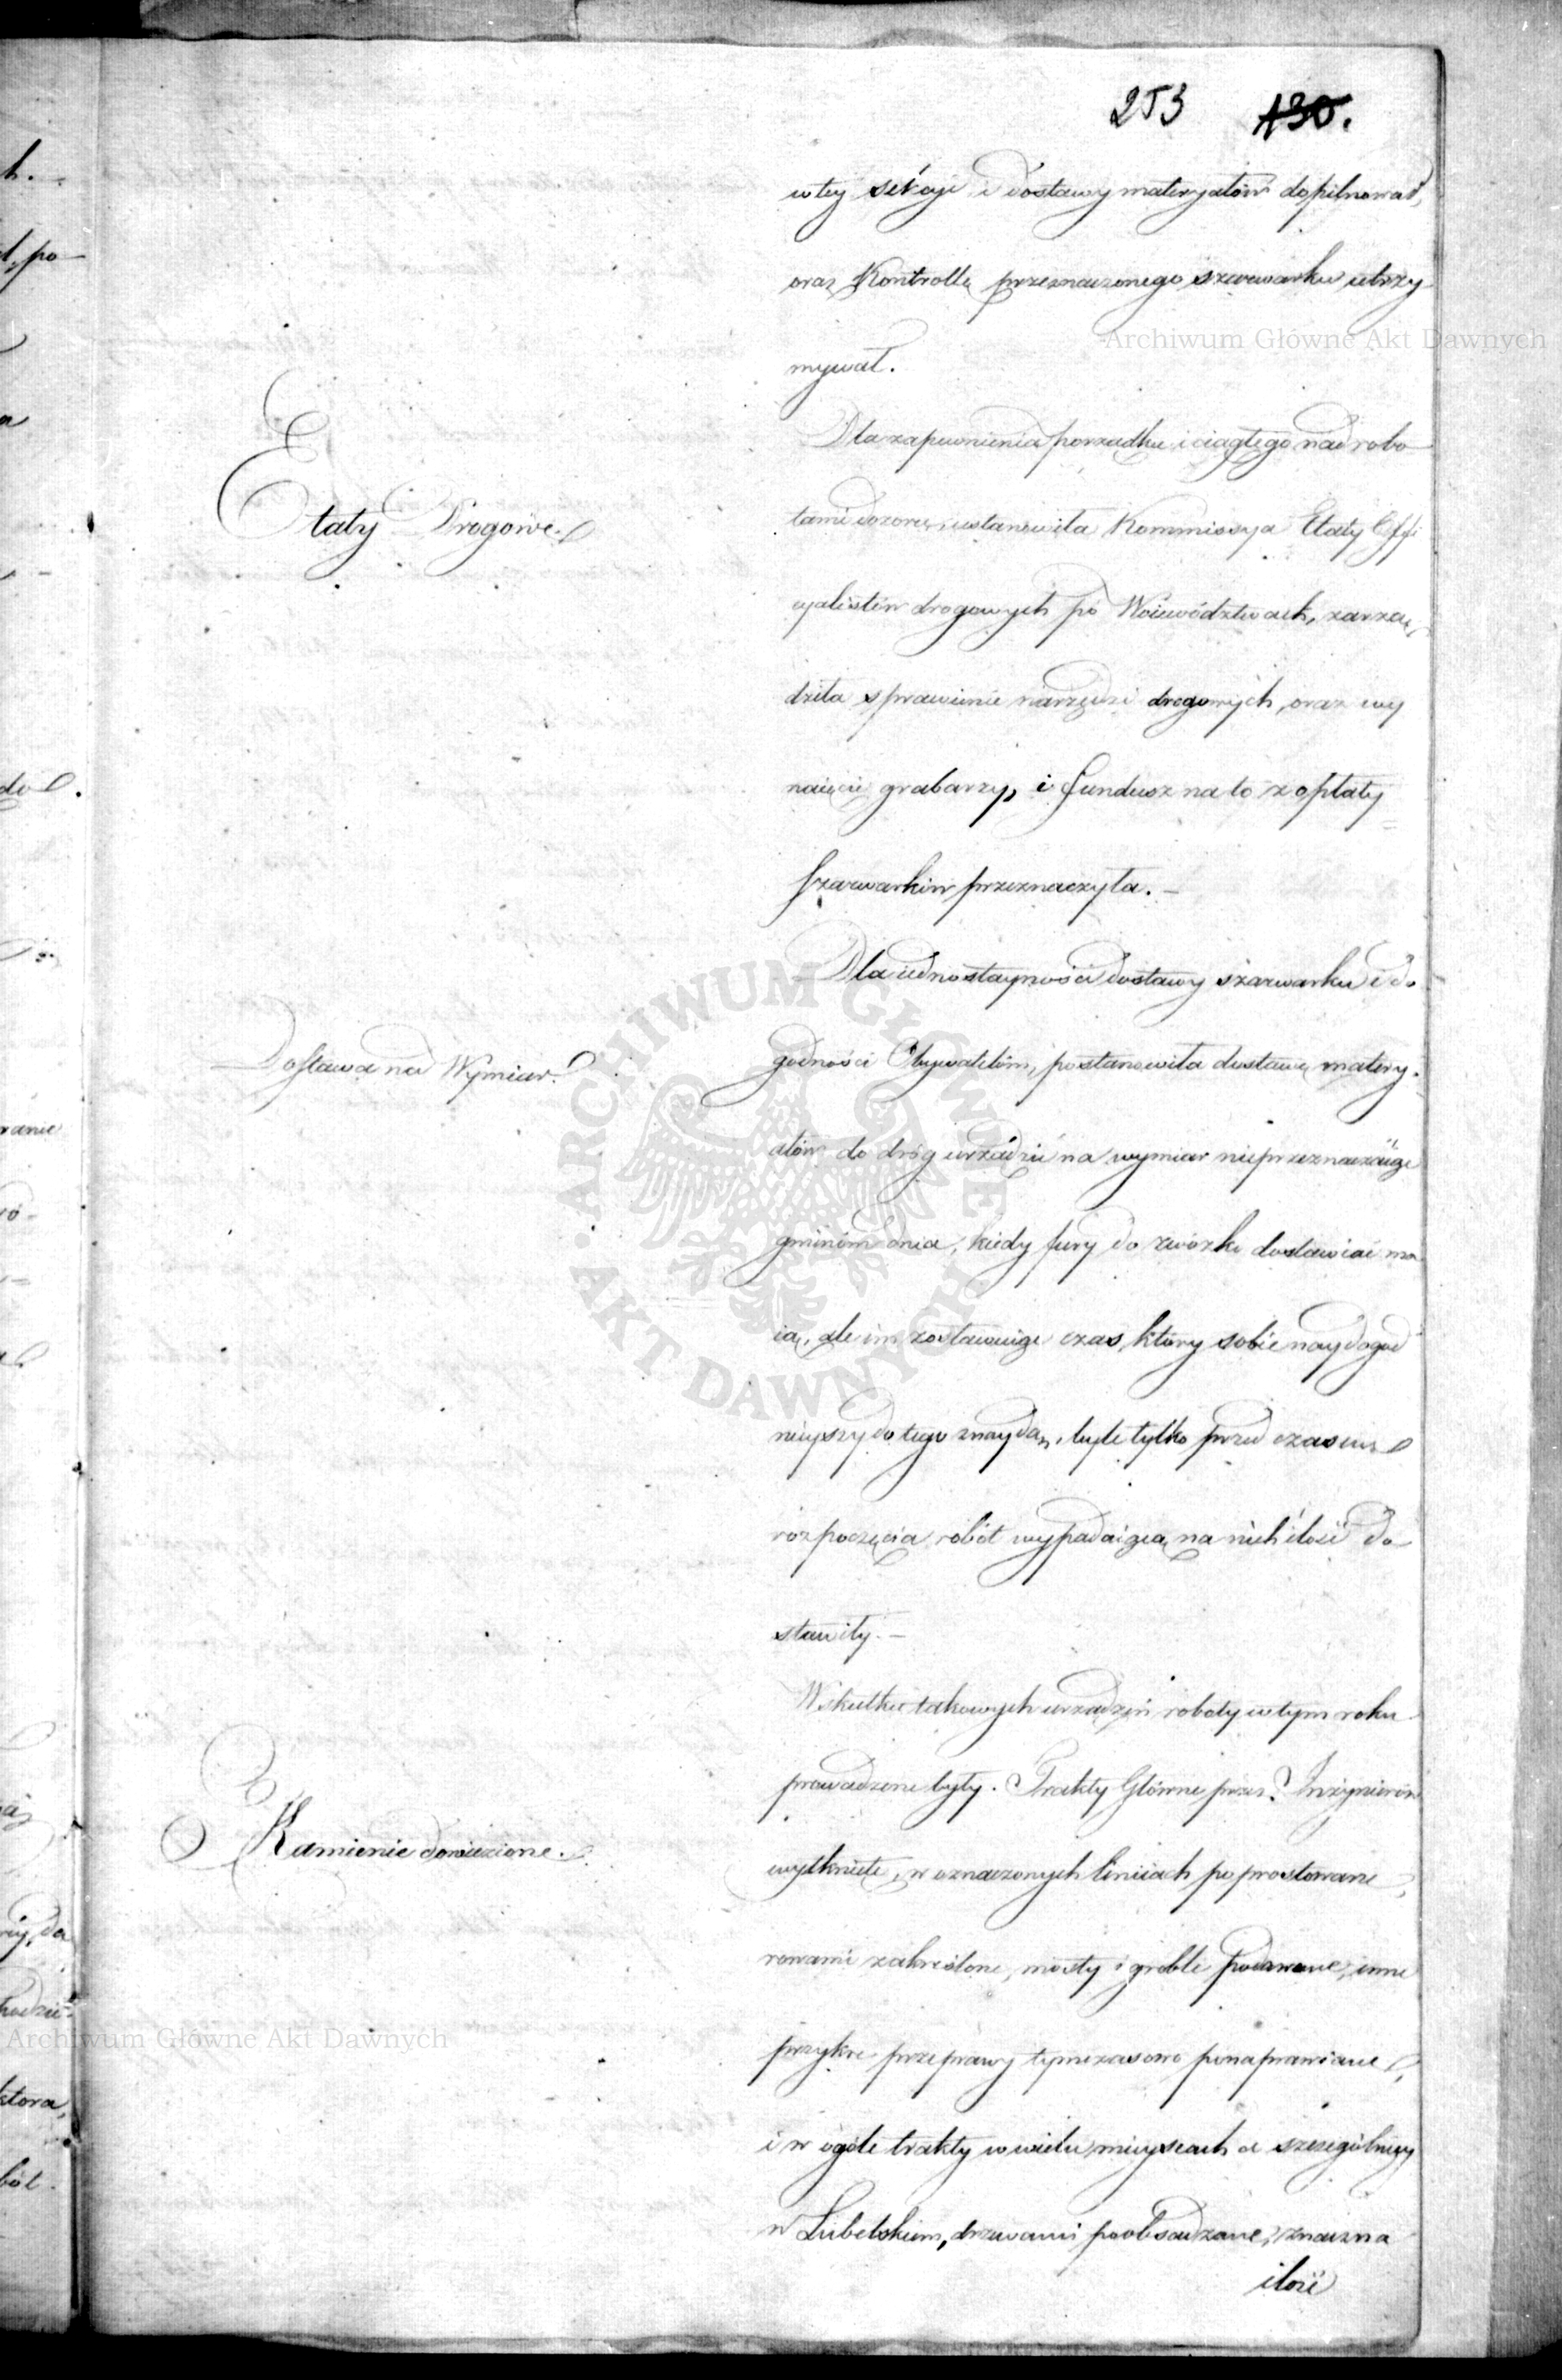 253 130.
w tey sekcyi i dostawy materyałów dopilnował,
oraz Kontrollę przeznaczonego szarwarku utrzy
mywał.
Dla zapewnienia porządku i ciągłego nad robo
Etaty Drogowe.
tami dozoru, ustanowiła Kommissya Etaty Offi
cyalistów drogowych po Woiewództwach, zarzą
dziła sprawienie narzędzi drogowych, oraz wy
naięcie grabarzy, i fundusz na to z opłaty
Szarwarków przeznaczyła.
Dla iednostayności dostawy szarwarku i do
Dostawa na Wymiar.
godności Obywatelom, postanowiła dostawę matery.
ałów do dróg urządzić na wymiar nieprzeznaczaiąc
gminom dnia, kiedy fury do zwózki dostawiać ma
ią, ale im zostawuiąc czas, który sobie naydogod
nieyszy do tego znaydą, byle tylko przed czasem
rozpoczęcia robót wypadaiącą na nich ilość do
stawiły.
W skutku takowych urządzeń roboty w tym roku
prowadzone były. Trakty Główne przez Inżynierów
Kamienie dowiezione.
wytknięte, w oznaczonych liniiach poprostowane,
rowami zakreślone, mosty i groble inne
przykre przeprawy tymczasowo ponaprawiane,
i w ogóle trakty w wielu mieyscach a szczególniey
w Lubelskiem, drzewami poobsadzane, znaczna
ilość
h.
d, po
a
dol.
ranie
ktora,
bót.
Archiwum Główne Akt Dawnych
ARCHIWUM GŁÓWNE
AKT DAWNYCH
Archiwum Główne Akt Dawnych